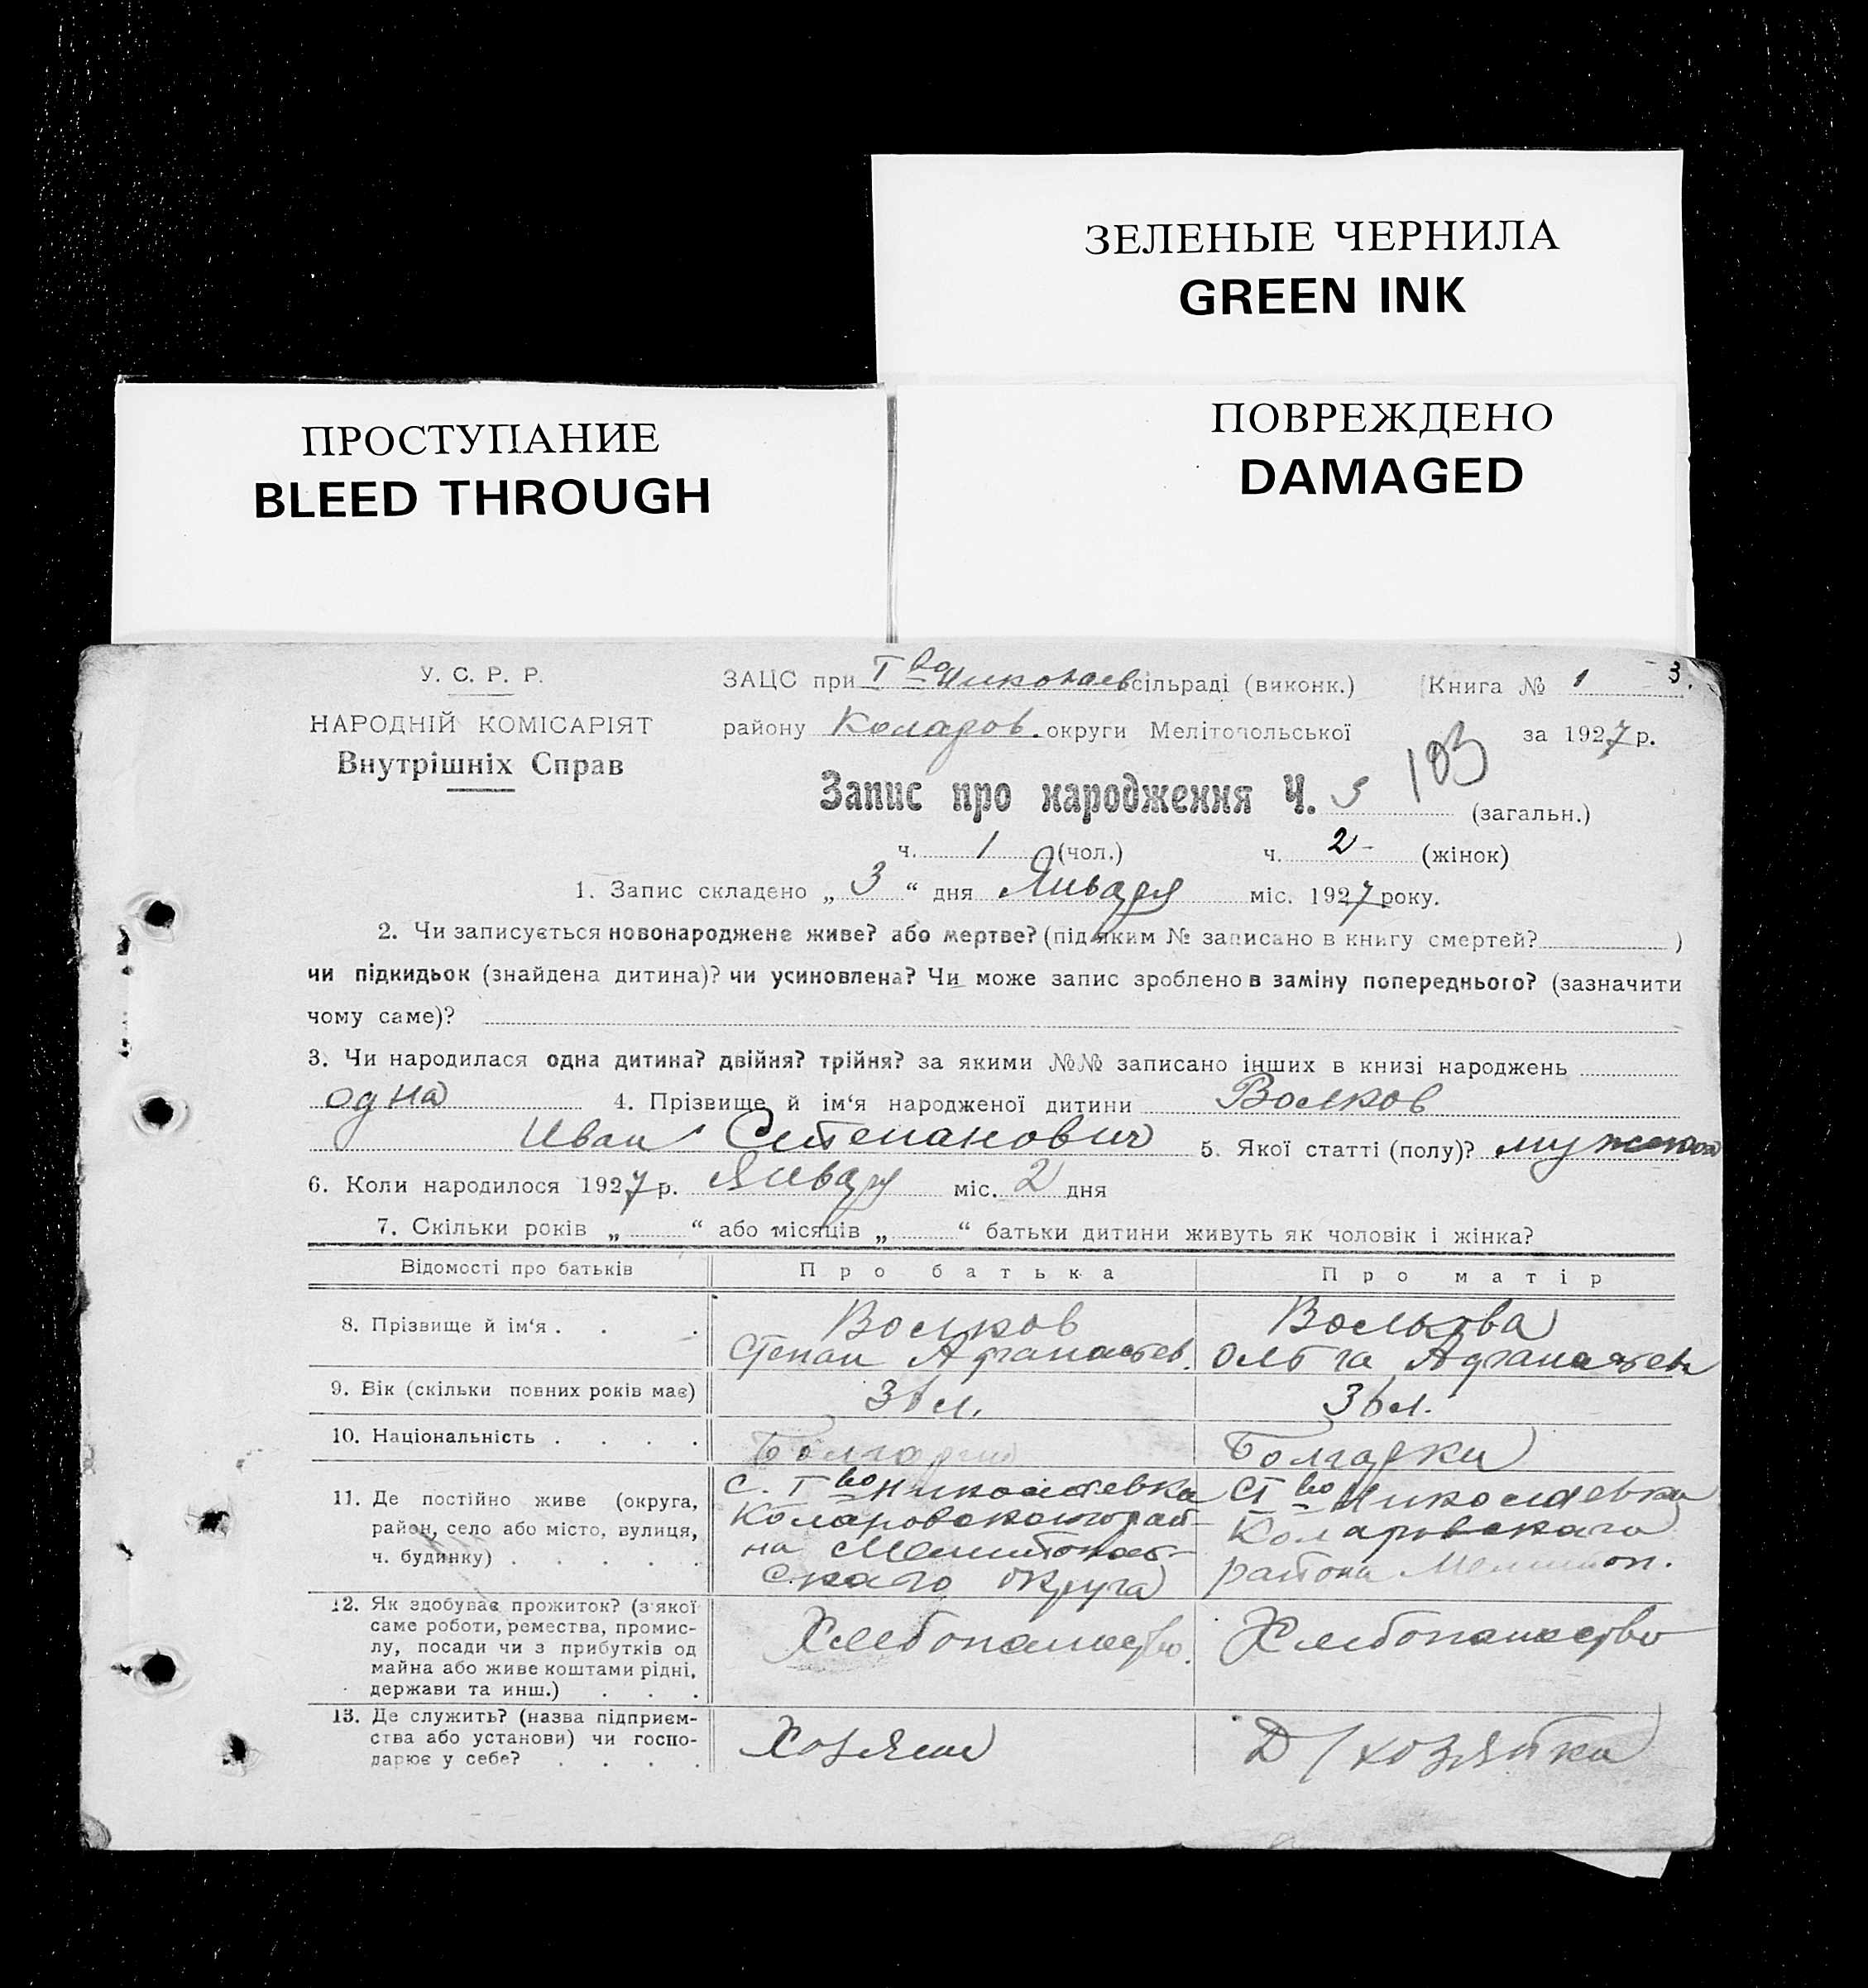 ЗЕЛЕНЫЕ ЧЕРНИЛА
GREEN INK
ПРОСТУПАНИЕ
BLEED THROUGH
ПОВРЕЖДЕНО
DAMAGED
3.
У. С. Р. Р.
НАРОДНІЙ КОМІСАРІЯТ
Внутрішніх Справ
ЗАЦС при Iво Николаев сільраді (виконк.) Книга № 1
району Коларов. округи Мелітопольської за 1927 р.
103
Запис про народження Ч. 3 (загальн.)
ч. 1 (чол.) ч. 2 (жінок)
1. Запис складено „ 3 “ дня Января міс. 1927 року.
2. Чи записується новонароджене живе? або мертве? (під яким № записано в книгу смертей? )
чи підкидьок (знайдена дитина)? чи усиновлена? Чи може запис зроблено в заміну попереднього? (зазначити
чому саме)?
3. Чи народилася одна дитина? двійня? трійня? за якими №№ записано інших в книзі народжень
одна 4. Прізвище й ім‘я народженої дитини Волков
Иван Степанович 5. Якої статті (полу)?
6. Коли народилося 1927 р. Январ міс. 2 дня
7. Скільки років „ “ або місяців „ “ батьки дитини живуть як чоловік і жінка?
Відомості про батьків Про батька Про матір
8. Прізвище й ім‘я . . .
Волков
Степан Афанасьев.
Волькова
Ольга Афанасьев
9. Вік (скільки повних років має) 36 л. 36 л.
10. Національність . . . . Болгарин Болгарки
11. Де постійно живе (округа,
район, село або місто, вулиця,
ч. будинку) . . . . .
с. Iво Николаевка
Коларовского рай-
на Мелитополь-
скаго округа
с Iво Николаевка
Коларовскаго
района Мелитоп.
12. Як здобуває прожиток? (з якої
саме роботи, ремества, промис-
лу, посади чи з прибутків од
майна або живе коштами рідні,
держави та инш.) . . .
Хлебопашество.
Хлебопашество
13. Де служить? (назва підприєм-
ства або установи) чи госпо-
дарює у себе? . . . .
Хозяин
Д/хозяйка